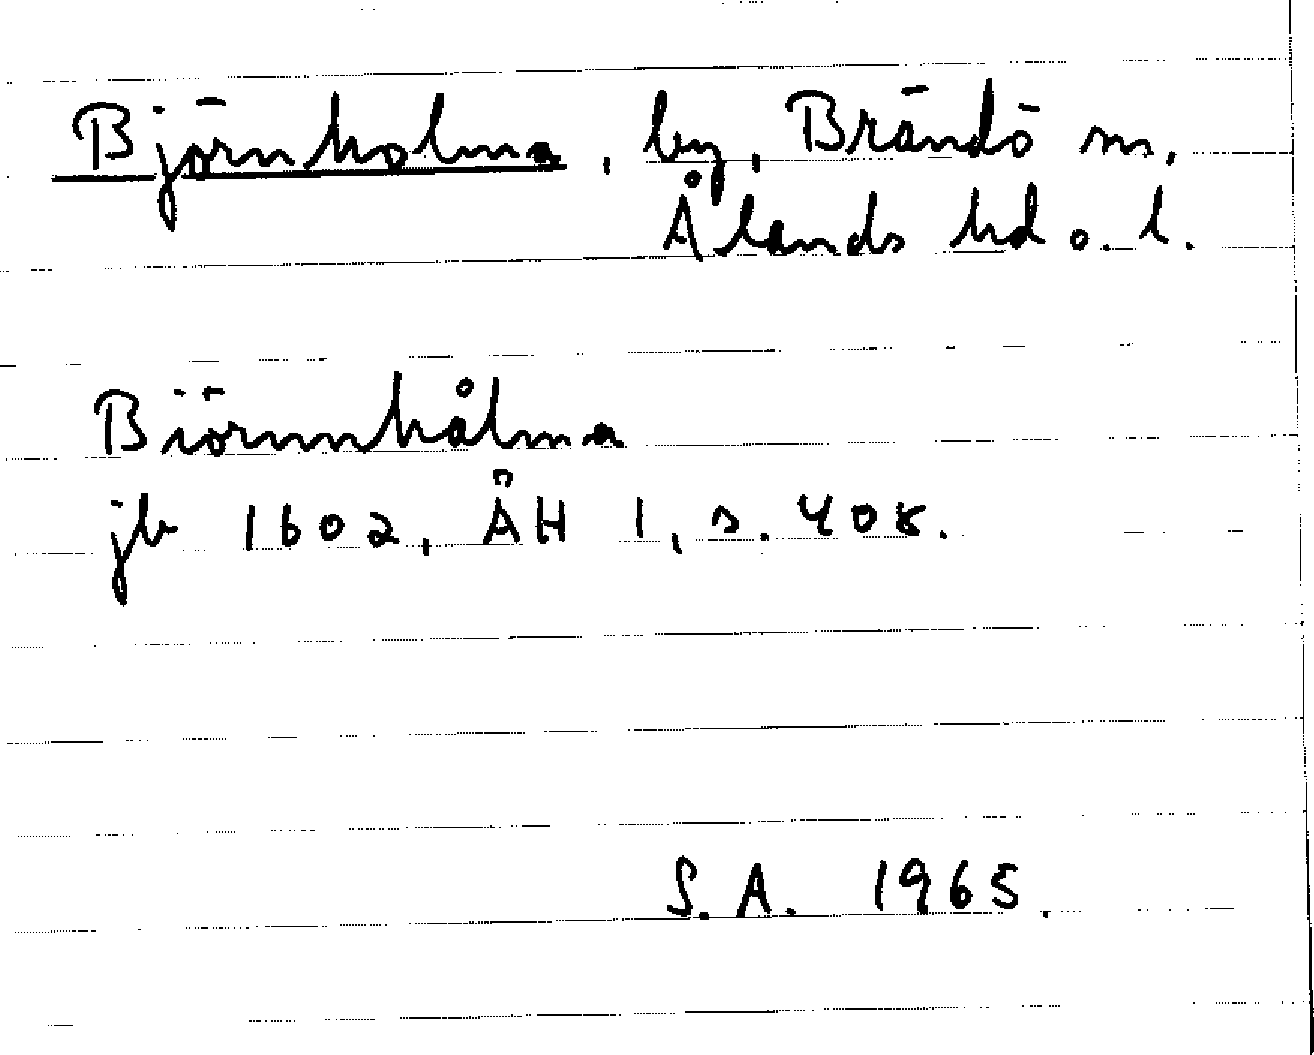 Björnholma, by, Brändö sn,
Ålands hd o. l.
Biörnnhålma
jb 1602, ÅH 1, s. 408.
S.A. 1965.